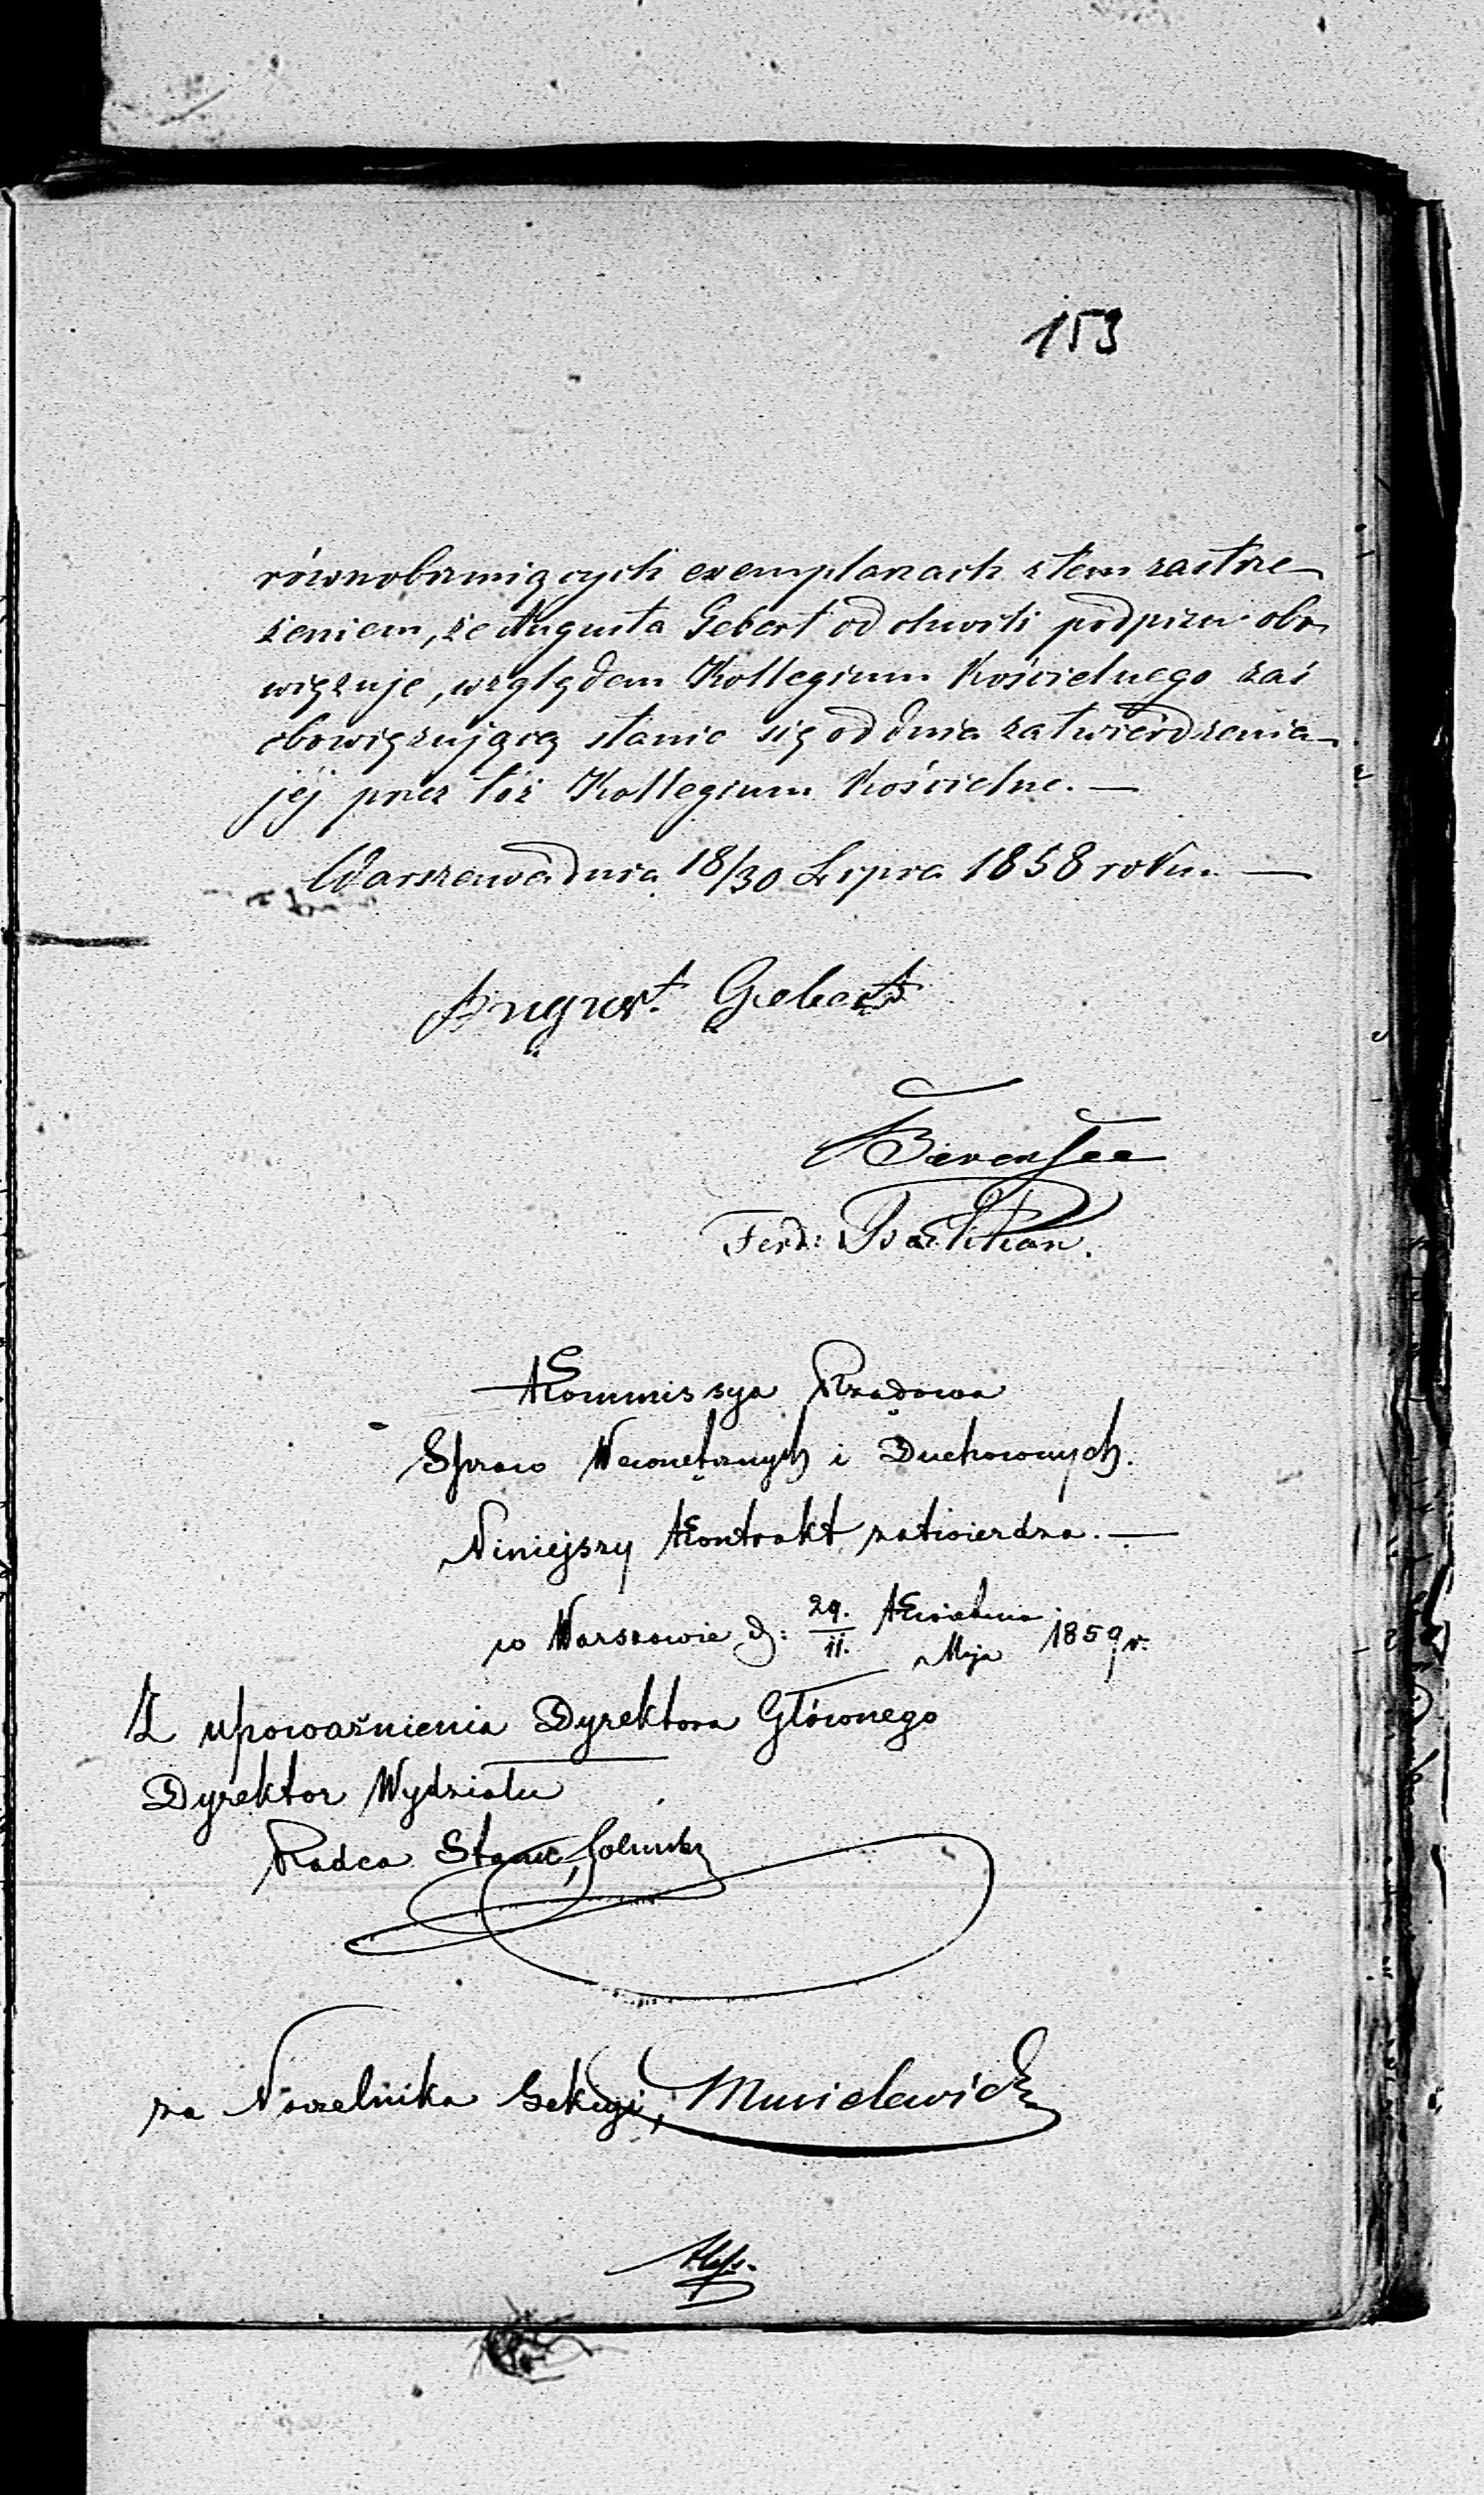 153
równobrzmiących exemplarzach z tem zastrze-
żeniem, że Augusta Gebert od chwili podpisu obo-
więzuje, względem Kollegium Kościelnego zaś
obowięzującą stanie się od dnia zatwierdzenia
jéj przez toż Kollegium Kościelne. —
Warszawa dnia 18/30 Lipca 1858 roku. —
August Gebert
Bevensee
Ferd:
Kommissya Rządowa
Spraw Wewnętrznych i Duchownych.
Niniejszy Kontrakt zatwierdza. —
w Warszawie d: 29. Kwietnia / 11. Maja 1859 r.
Z upoważnienia Dyrektora Głównego
Dyrektor Wydziału
Radca Stanu,
za Naczelnika Sekcyi, Musielewicz